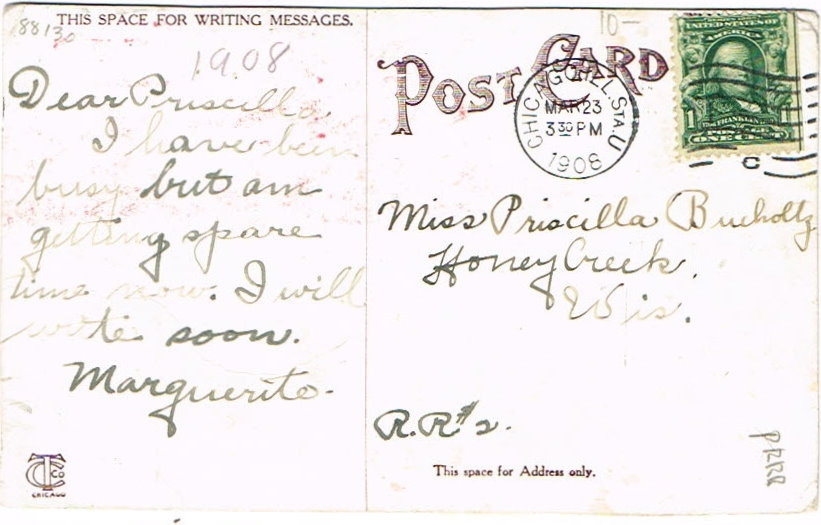 88130
THIS SPACE FOR WRITING MESSAGES.
1908
Dear Priscilla
I have been
busy but am
getting spare
time now. I will
write soon.
Marguerite.
CHICAGO
10—
POST CARD
CHICAGO, ILL. STA. U
MAR 23
3 30 PM
1908
UNITED STATES OF
AMERICA
1
FRANKLIN
POSTAGE
ONE CENT
C
Miss Priscilla Bucholtz
Honey Creek,
Wis.
R.R.#2.
This space for Address only.